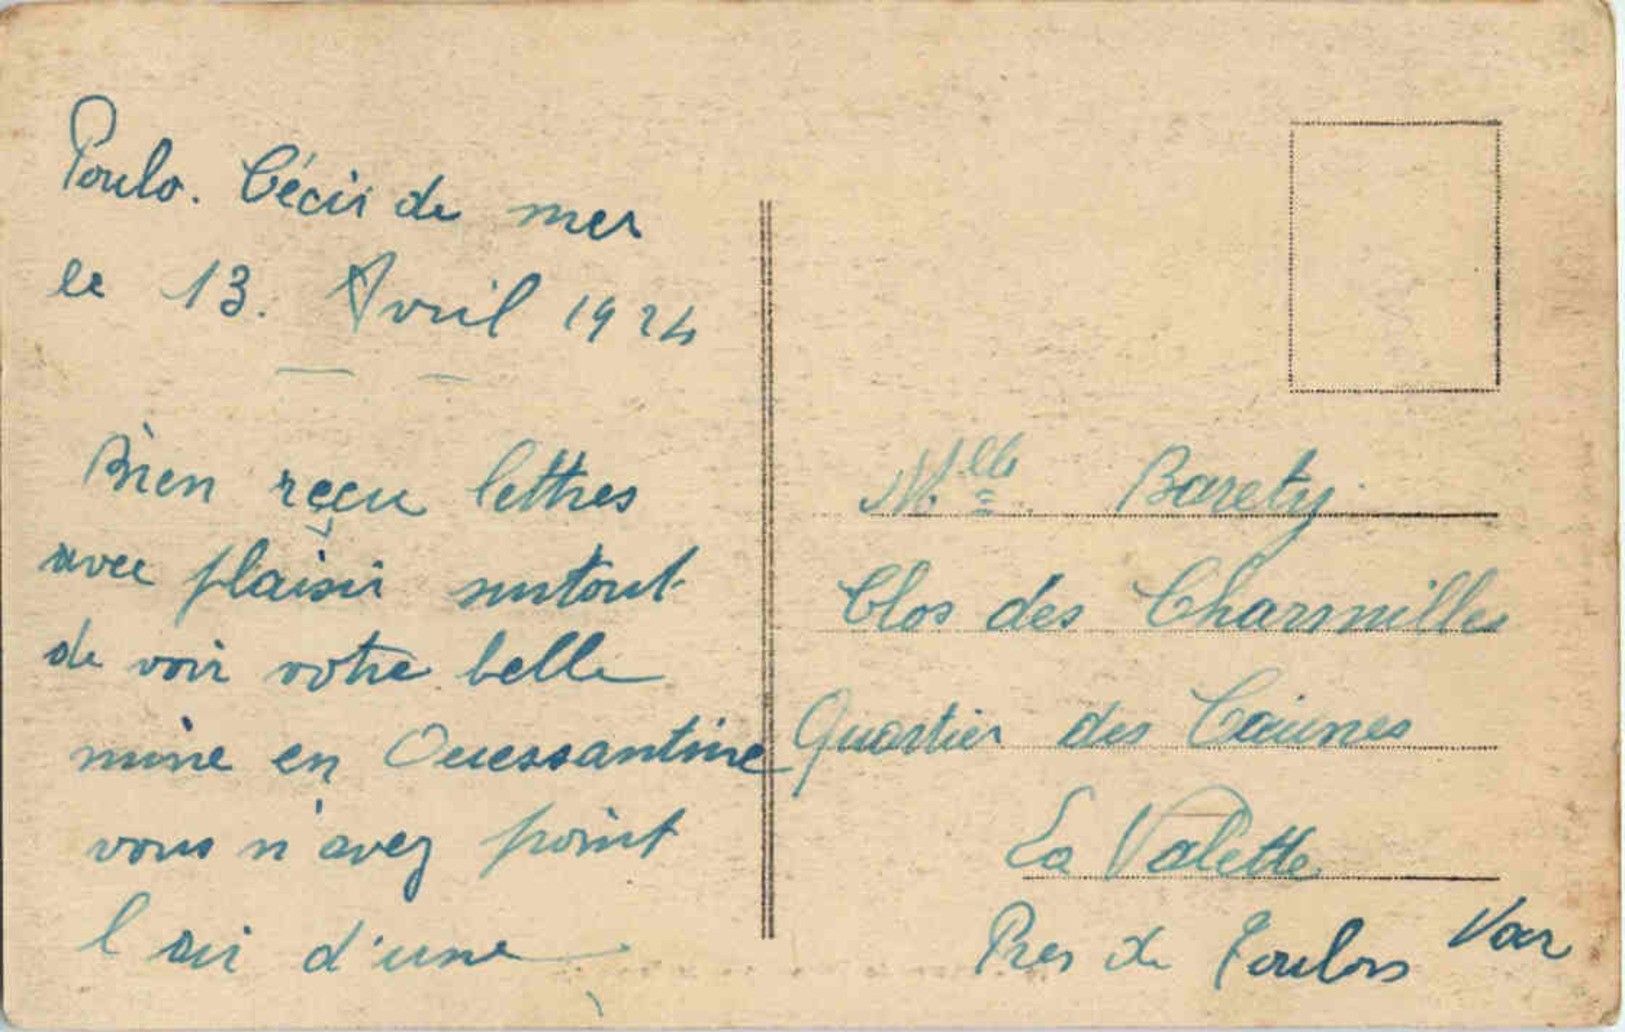 Poulo. Cécir de mer
le 13. Avril 1924
Bien reçu lettres
avec plaisir surtout
de voir votre belle
mine en Ouessantine
vous n'avez point
l'air d'une
Mlle. Barety.
Clos des Charmilles
Quartier des
La Valette
Pres de Toulon Var